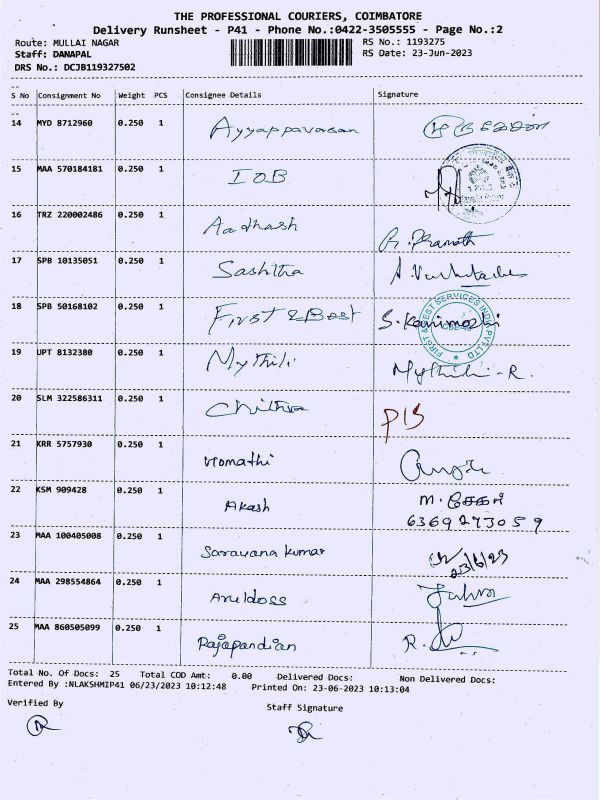 THE PROFESSIONAL COURIERS, COIMBATORE
Delivery Runsheet - P41 - Phone No.:0422-3505555 - Page No.:2
Route: MULLAI NAGAR
RS No.: 1193275
Staff: DANAPAL
RS Date: 23-Jun-2023
DRS No.: DCJB119327502
S No Consignment No Weight PCS Consignee Details Signature
14 MYD 8712960 0.250 1 Ayyappavasan
15 MAA 570184181 0.250 1 IOB
16 TRZ 220002486 0.250 1 Aadhash R. Pranath
17 SPB 10135051 0.250 1 Sashtha
18 SPB 50168102 0.250 1 First & Best S. Kanimozhi
FIRST & BEST SERVICES INDIA PVT LTD
19 UPT 8132380 0.250 1 Mythili Mythili - R.
20 SLM 322586311 0.250 1 Chithra P13
21 KRR 5757930 0.250 1 Vomathi
22 KSM 909428 0.250 1 Akash m. சேகர்
6369273059
23 MAA 100405008 0.250 1 Saravana kumar 23/6/23
24 MAA 298554864 0.250 1 Aruldoss
25 MAA 860505099 0.250 1 Rajapandian
Total No. Of Docs: 25 Total COD Amt: 0.00 Delivered Docs: Non Delivered Docs:
Entered By :NLAKSHMIP41 06/23/2023 10:12:48 Printed On: 23-06-2023 10:13:04
Verified By
Staff Signature